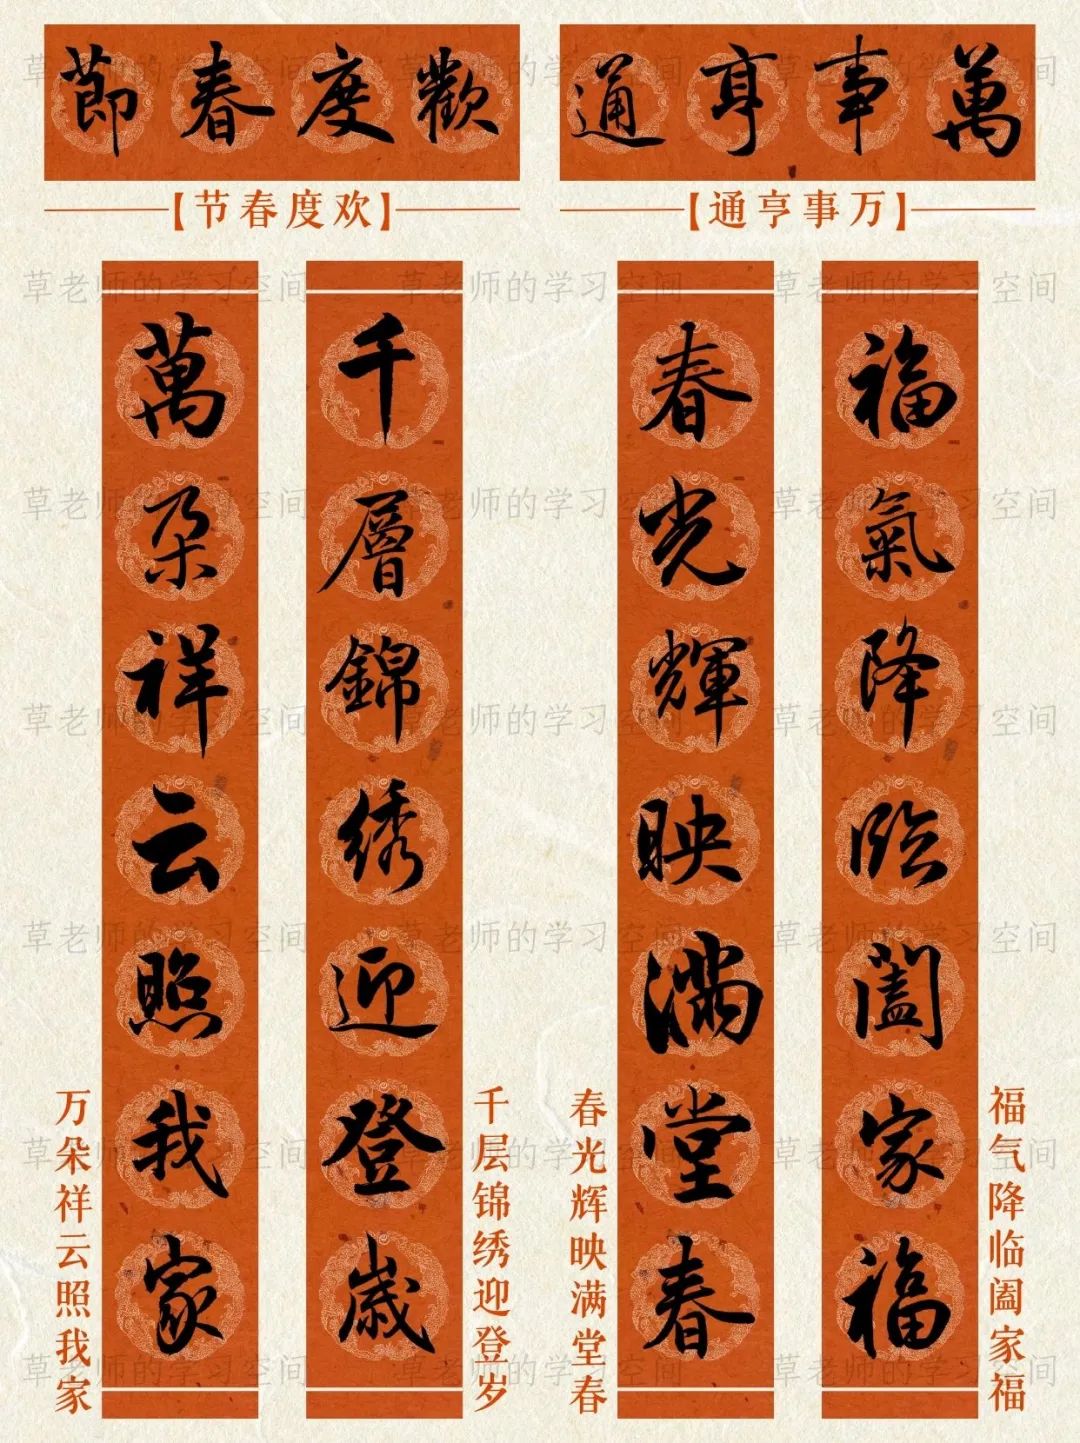 萬事亨通
【万事亨通】
福氣降临阖家福
福气降临阖家福
春光輝映满堂春
春光辉映满堂春
歡度春節
【欢度春节】
千層錦绣迎登歲
千层锦绣迎登岁
萬朵祥云照我家
万朵祥云照我家
草老师的学习空间